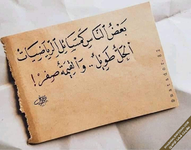 بَعْضُ النَّاسِ كَمَسَائِلِ الرِّيَاضِيَّاتِ
الْحَلُّ طَوِيلٌ .. وَالْقِيمَةُ صِفْرٌ !